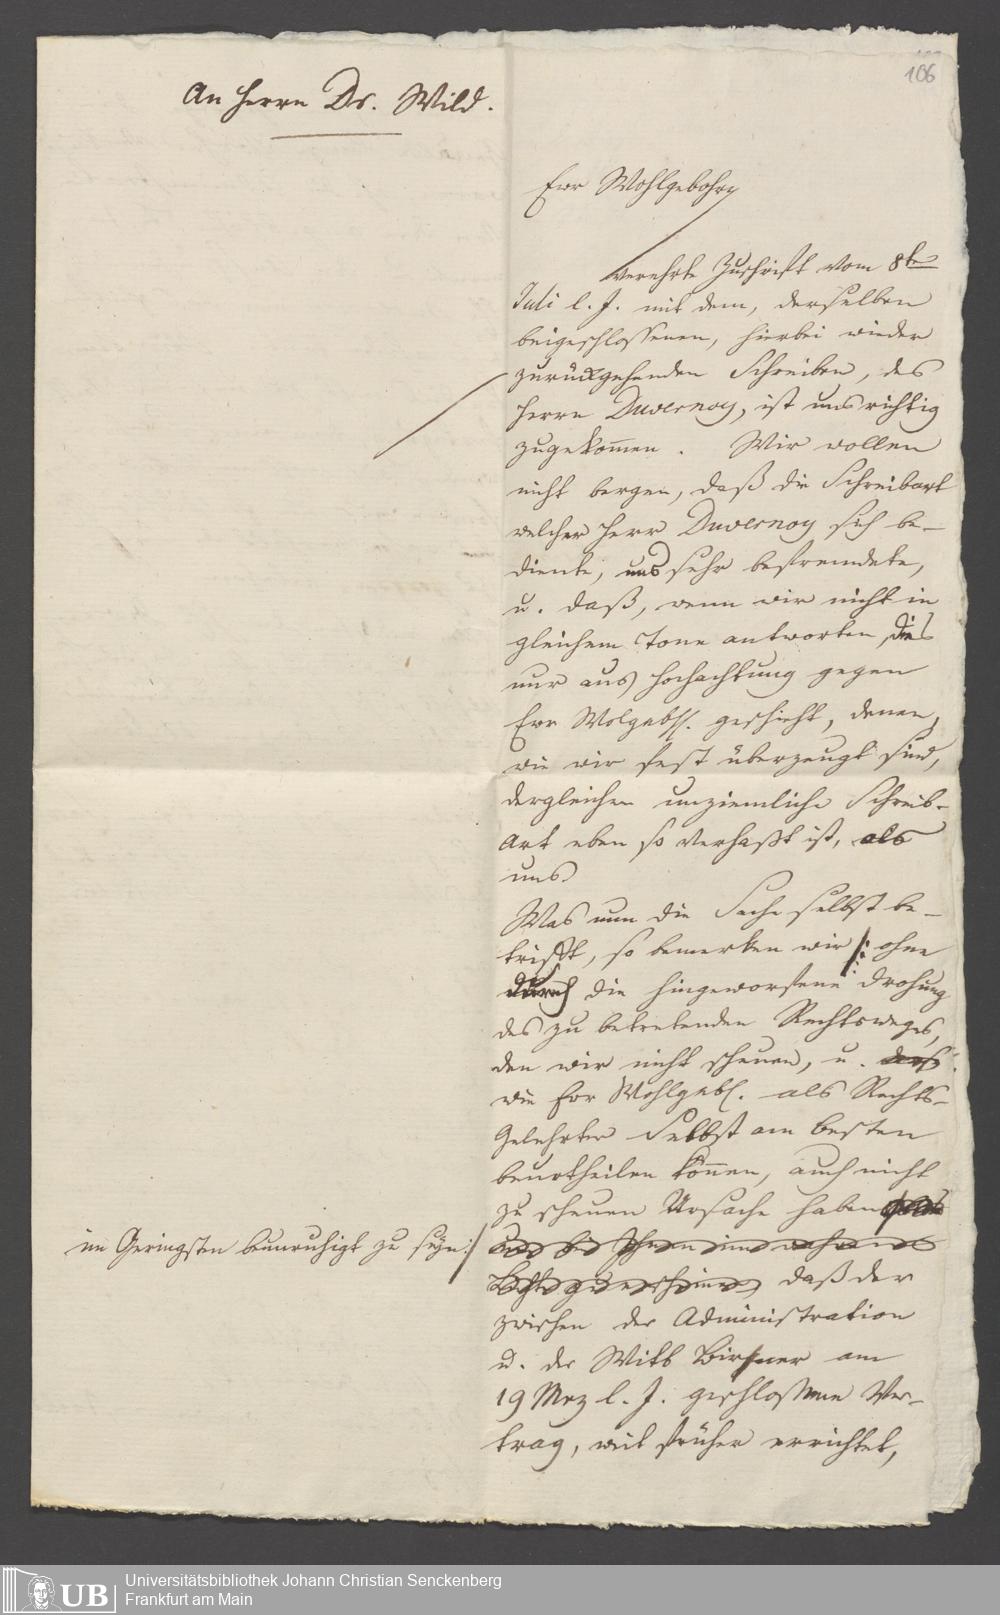 106
An Herrn Dr. Wild.
Eur Wohlgebohrn
verehrte Zuschrift vom 8ten
Juli l. J. mit dem, derselben
beigeschlossenen, hierbei wieder
zurückgehenden Schreiben, des
Herrn Duvernoy, ist uns richtig
zugekom̅en. Wir wollen
nicht bergen, daß die Schreibart
welcher Herr Duvernoy sich be-
diente, uns sehr befremdete,
u. daß, wenn wir nicht in
gleichem Tone antworten, dies
nur aus Hochachtung gegen
Eur Wolgebh. geschieht, denen,
wie wir fest überzeugt sind,
dergleichen unziemliche Schreib-
Art eben so verhaßt ist, als
uns.
Was nun die Sache selbst be-
trifft, so bemerken wir /: ohne
durch die hingeworfene Drohung
des zu betretenden Rechtsweges,
den wir nicht scheuen, u.
wie Eur Wohlgebh. als Rechts-
Gelehrter Selbst am besten
beurtheilen kön̅en, auch nicht
zu scheuen Ursache haben
im Geringsten beunruhigt zu seyn :/
daß der
zwischen der Administration
u. der Witb Birkner am
19 Mrz l. J. geschlossene Ver-
trag, weit früher errichtet,
UB
Universitätsbibliothek Johann Christian Senckenberg
Frankfurt am Main